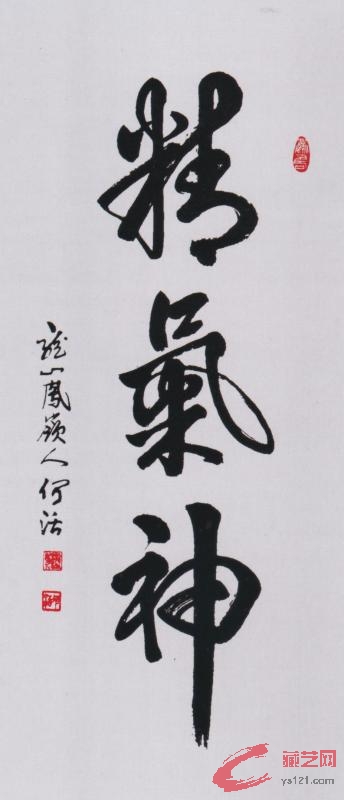 精氣神
龍山鳳嶺人何活
藏艺网
ys121.com